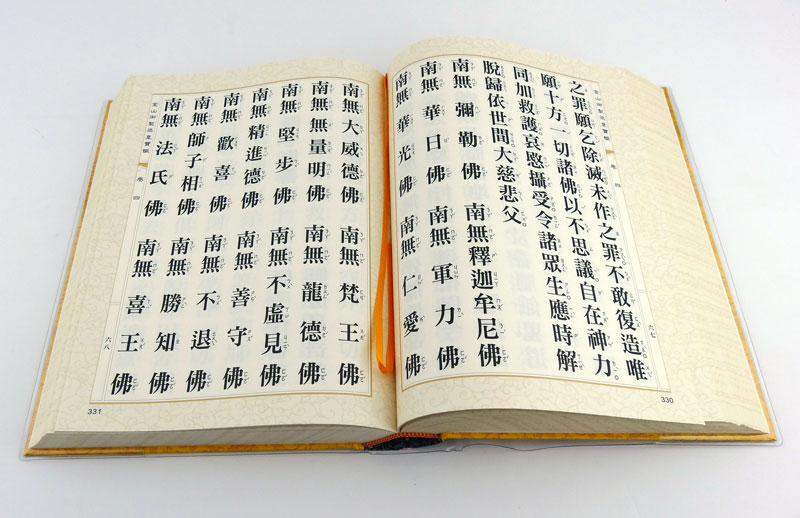 金山御製梁皇寶懺 卷四 六七
之罪願乞除滅未作之罪不敢復造唯
願十方一切諸佛以不思議自在神力
同加救護哀愍攝受令諸眾生應時解
脫歸依世間大慈悲父
南無彌勒佛 南無釋迦牟尼佛
南無華日佛 南無軍力佛
南無華光佛 南無仁愛佛
330
南無大威德佛 南無梵王佛
南無無量明佛 南無龍德佛
南無堅步佛 南無不虛見佛
南無精進德佛 南無善守佛
南無歡喜佛 南無不退佛
南無師子相佛 南無勝知佛
南無法氏佛 南無喜王佛
金山御製梁皇寶懺 卷四 六八
331